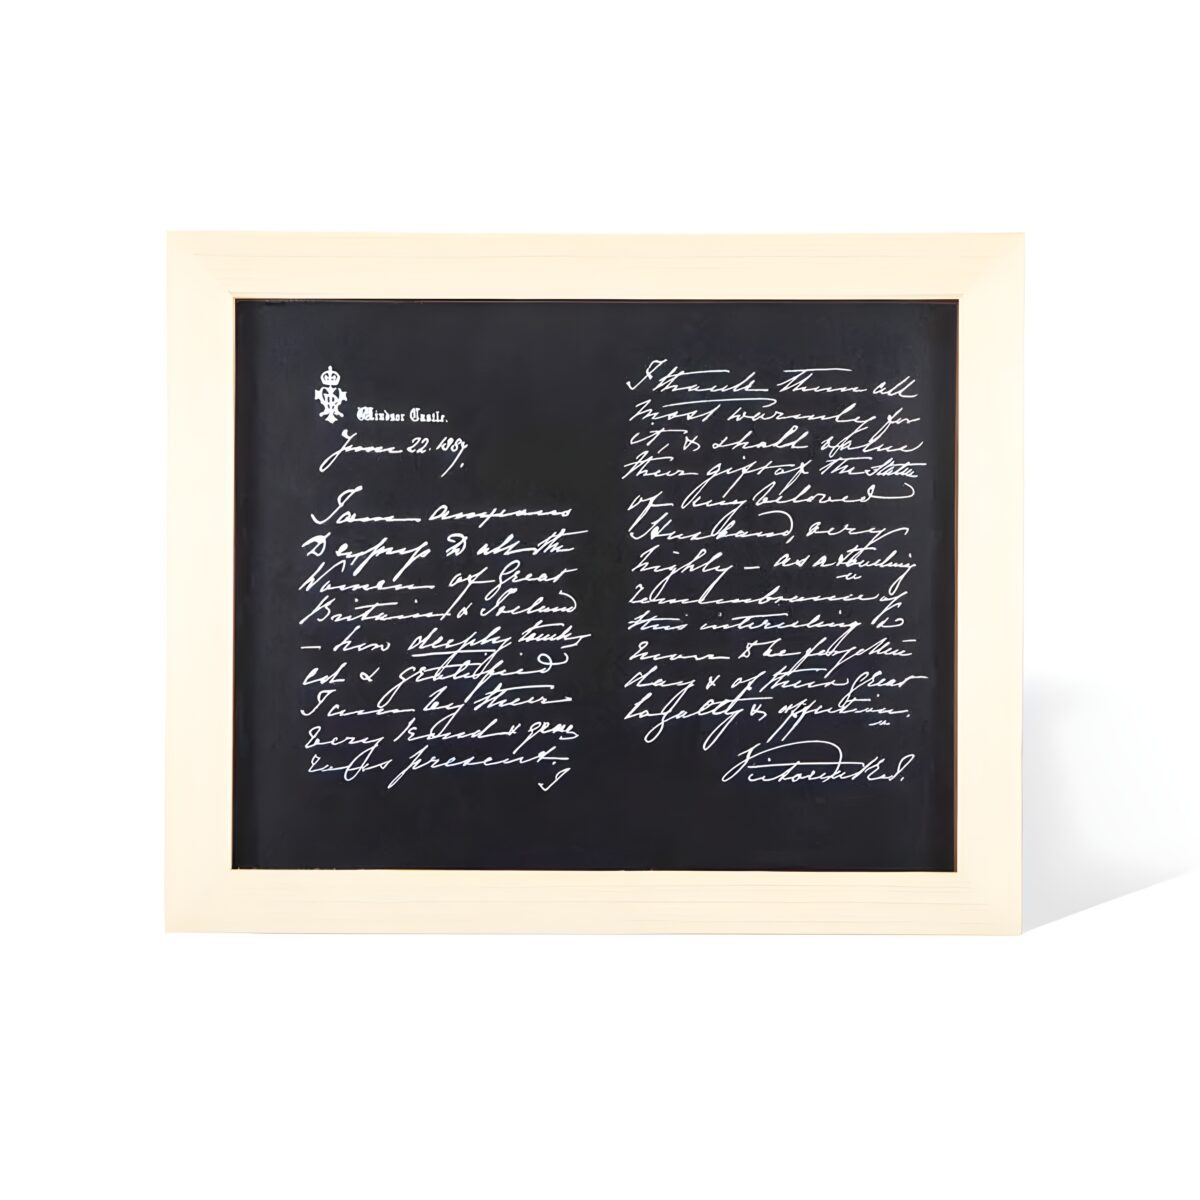 Windsor Castle.
June 22. 1887.
I am anxious
to express to all the
Women of Great
Britain & Ireland
– how deeply touch
ed & gratified
I am by their
very kind & gene
rous present.
I
I thank them all
most warmly for
it, & shall value
their gift of the Statue
of my beloved
Husband, very
highly – as a touching
remembrance of
this interesting &
never to be forgotten
day & of their great
loyalty & affection.
Victoria R&I.